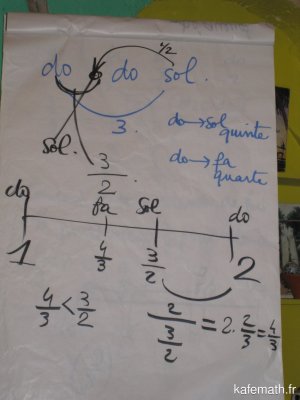 1/2
do do sol.
3.
do → sol
quinte
sol.
3/2
do → fa
quarte
do fa sol do
1 4/3 3/2 2
4/3 < 3/2
2/(3/2) = 2 · 2/3 = 4/3
kafemath.fr